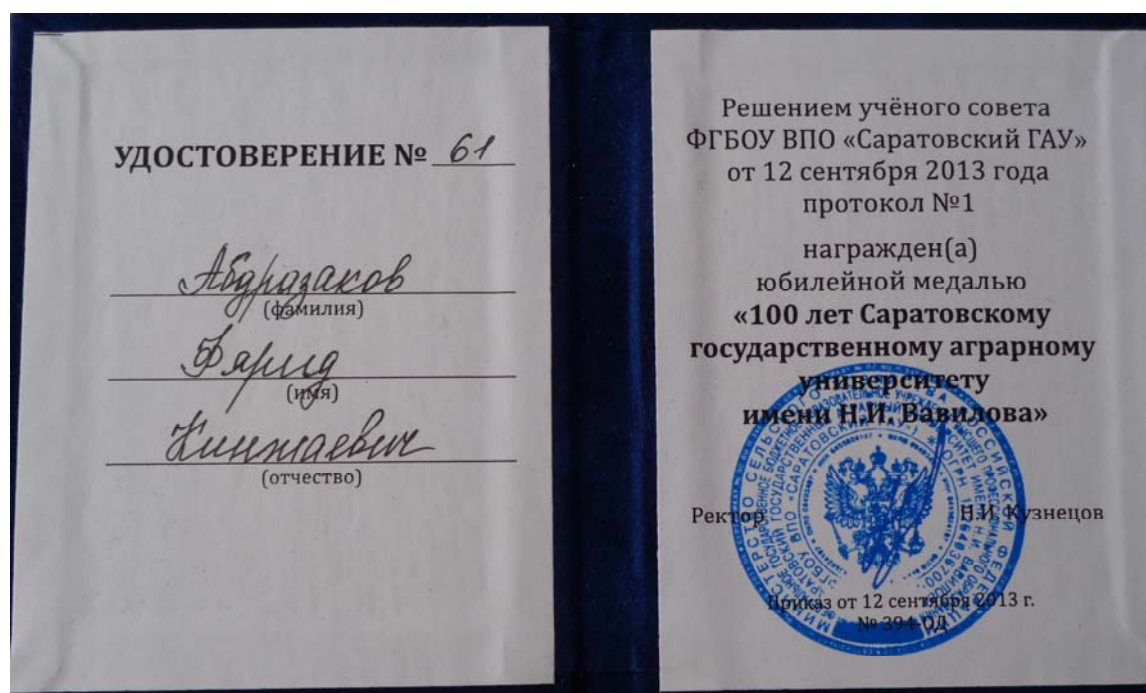 УДОСТОВЕРЕНИЕ № 61
Абдразаков
(фамилия)
Фярид
(имя)
Кинжаевич
(отчество)
Решением учёного совета
ФГБОУ ВПО «Саратовский ГАУ»
от 12 сентября 2013 года
протокол №1
награжден(а)
юбилейной медалью
«100 лет Саратовскому
государственному аграрному
университету
имени Н.И. Вавилова»
Ректор Н.И. Кузнецов
Приказ от 12 сентября 2013 г.
№ 394-ОД